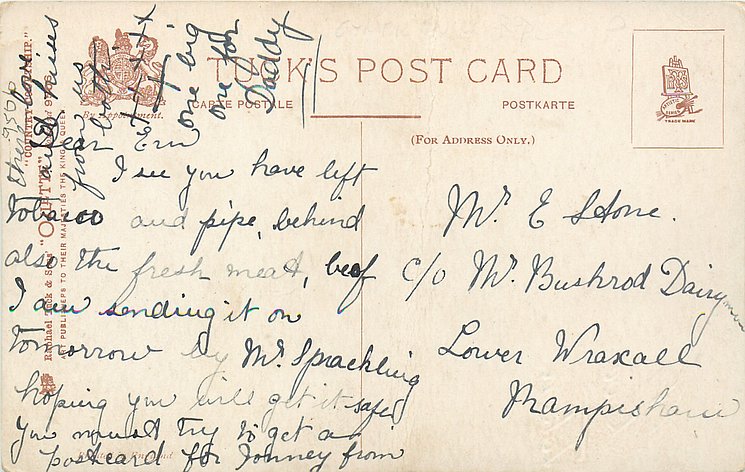 TUCK'S POST CARD
CARTE POSTALE
POSTKARTE
(FOR ADDRESS ONLY.)
By Appointment.
TRADE MARK
Raphael Tuck & Sons' "OILETTE"
"COUNTRY COURTSHIP."
ART PUBLISHERS TO THEIR MAJESTIES THE KING & QUEEN
Dear Ern
I see you have left
Tobacco and pipe, behind
also the fresh meat, beef
I am sending it on
Tomorrow by Mr Sprackling
hoping you will get it safe
You must try to get a
postcard for Jonney from
love and kisses
from us
both
one big
one for
Daddy
Mr E Stone.
C/o Mr Bushrod Dairyman
Lower Wraxall
Rampisham